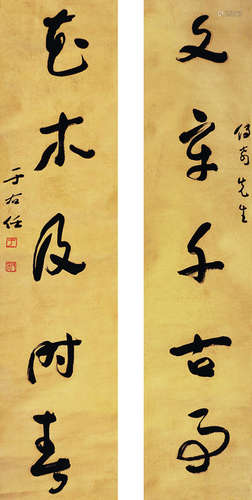 先生
文章千古事
花木及时春
于右任